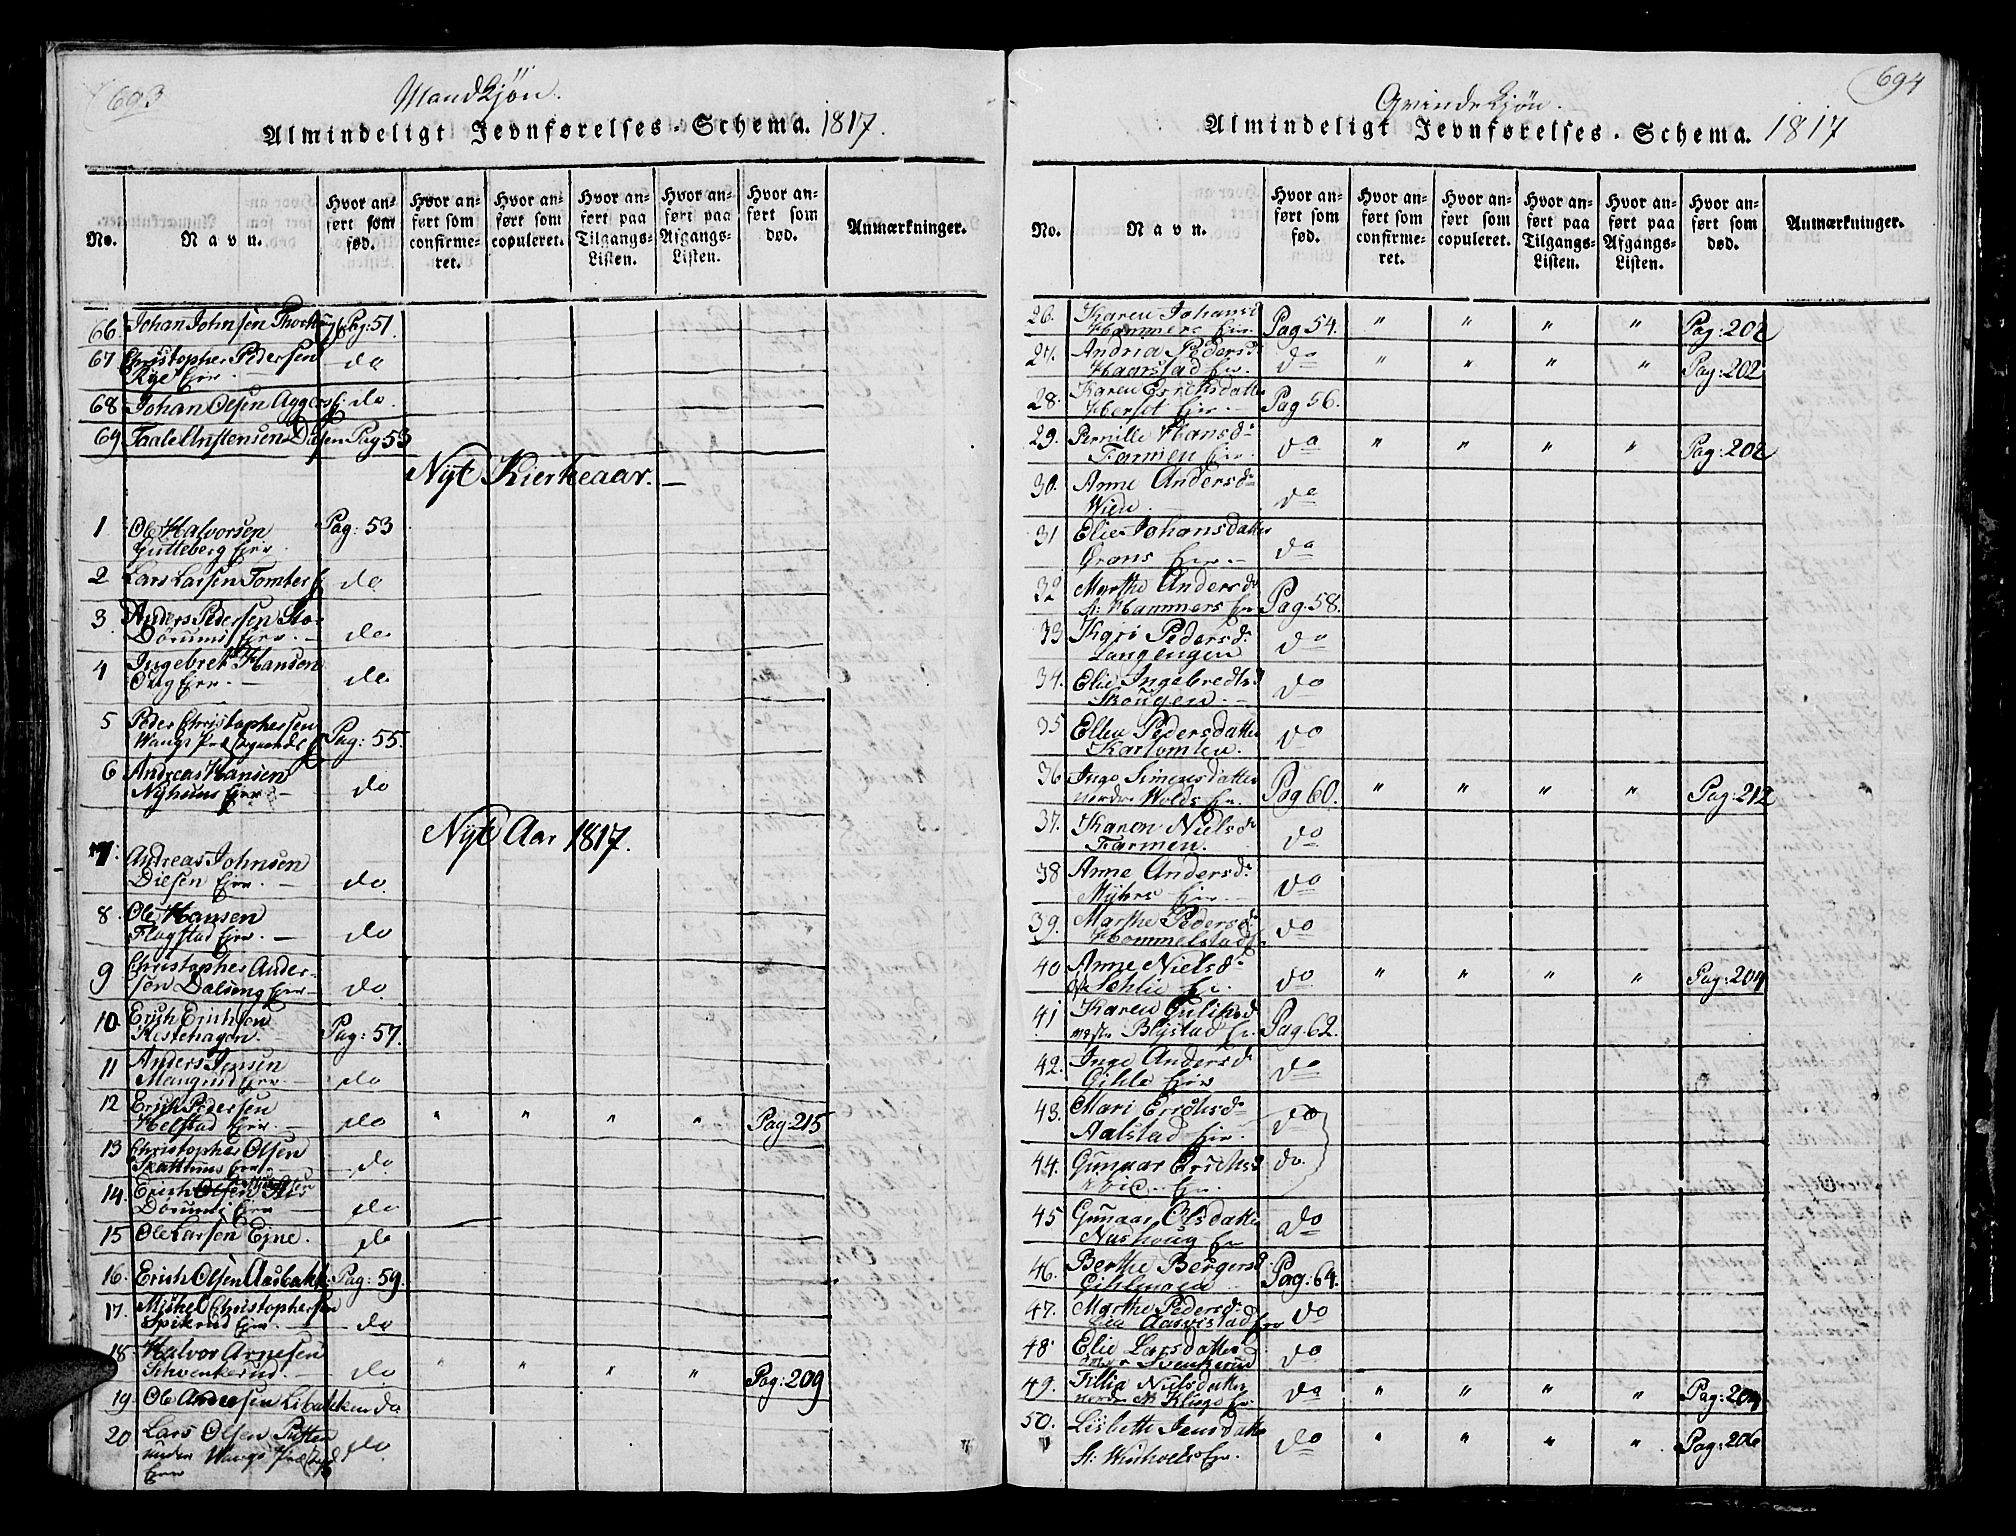 693
Mandkjön.
Almindeligt Jevnførelses-Schema. 1817.
No.
Navn.
Hvor anført som fød.
Hvor anført som confirmeret.
Hvor anført som copuleret.
Hvor anført paa Tilgangs-Listen.
Hvor anført paa Afgangs-Listen.
Hvor anført som død.
Anmærkninger.
66. Johan Johnsen Pag: 51.
67 Christopher Pedersen
Rye Eier. do
68 Johan Olsen do.
69 Taale Anstensen Disen Pag 53
Nyt Kierkeaar.
1 Ole Halvorsen Pag: 53
Gutteberg Eier.
2 Lars Larsen do
3. Anders Pedersen Sto-
Dörums Eier. do
4 Ingebret Hansen
Eier. do
5 Peder Christophersen
Wangs Pag: 55.
6 Andreas Hansen
Nyhuus Eier. do
Nyt Aar 1817.
7. Andreas Johnsen
Diesen Eier. do
8. Ole Hansen
Flagstad Eier. do
9 Christopher Ander-
sen Dalseng Eier. do
10. Erich Erichsen
Kestehagen. Pag: 57.
11 Anders Jensen
Mangrud Eier. do
12 Erich Pedersen
Helstad Eier. do " " " " Pag: 215
13 Christopher Olsen
Skattums Eier. do
14. Erich
Dörums Eier do
15 Ole Larsen Ejne. do
16. Erich Olsen Aasbakk. Pag: 59.
17. Michel Christophersen
Spikrud Eier. do
18 Halvor Arnesen
Schvenkerud. do " " " " Pag: 209
19. Ole Andersen Libakken do
20 Lars Olsen
under Wangs do.
Eier
694
Qvindekjön.
Almindeligt Jevnførelses-Schema. 1817
No.
Navn.
Hvor anført som fød.
Hvor anført som confirmeret.
Hvor anført som copuleret.
Hvor anført paa Tilgangs-Listen.
Hvor anført paa Afgangs-Listen.
Hvor anført som død.
Anmærkninger.
26. Karen Johansd
Hammers Eier Pag 54. " " " " Pag: 202
27. Andria Pedersd:
Haarstad Eier. do " " " " Pag: 202
28. Karen Erichsdatter
Eier. Pag 56.
29. Pernille Hansd:
Farmen Eier. do " " " " Pag: 202
30. Anne Andersd:
Wien do
31 Elie Johansdatter
Grans Eier. do
32 Marthe Andersd:
Hammers Eier Pag. 58.
33 Kari Pedersd:
Langengen do
34. Elie Ingebredtsd
Skougen. do
35 Ellen Pedersdatter
Kartomten. do
36 Inge Simensdatter
nordre Wolds Eier. Pag 60. " " " " Pag: 212
37. Karen Nielsd:
Farmen. do
38 Anne Andersd:
Myhrs Eier. do
39. Marthe Pedersd:
Hommelstad do
40 Anne Nielsd:
Schlie Eier. do " " " " Pag: 204
41 Karen
Blystad Eier Pag. 62.
42. Inge Andersd:
Gihle Eier do
43. Mari Erichsd:
Aalstad Eier. do
44. Gunnar Erichsd
Eier. do.
45 Gunnar Olsdatter
Nashoug Eier do
46. Berthe Bergersd
Pag: 64.
47. Marthe Pedersd:
do
48. Elie Larsdatter
Svenkerud do
49. Tillia Nielsdatter
nordre do " " " " Pag: 204
50. Lisbette Jensdatter
Eier. do " " " " Pag: 206